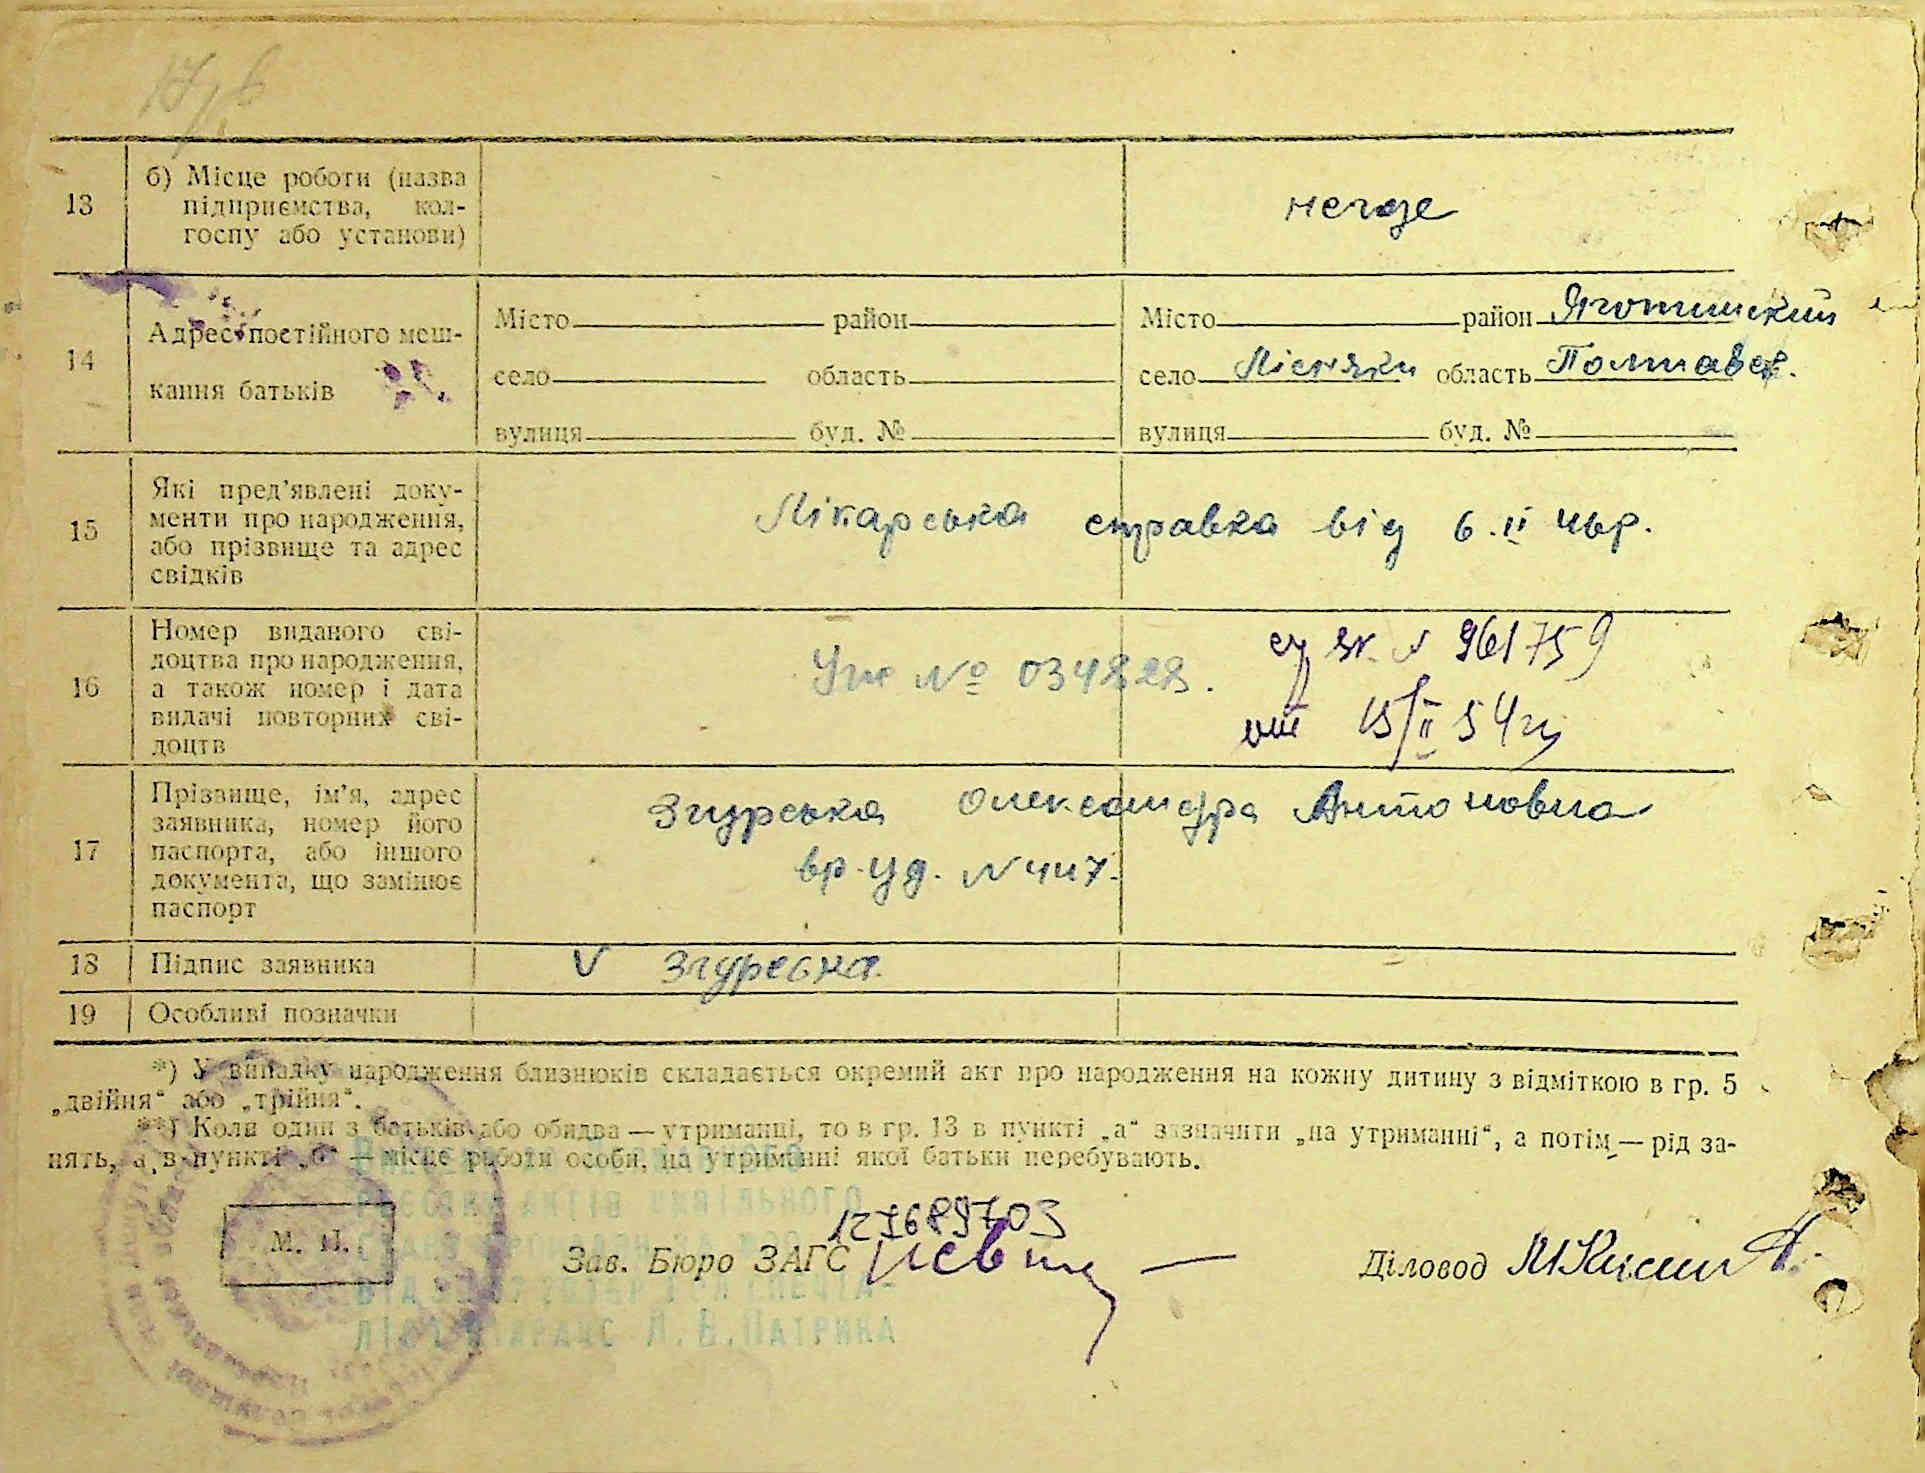 13
б) Місце роботи (назва
підприємства, кол-
госпу або установи)
негде
14
Адрес постійного меш-
кання батьків
Місто район
село область
вулиця буд. №
Місто район Яготинский
село Лісняки область Полтавск.
вулиця буд. №
15
Які пред'явлені доку-
менти про народження,
або прізвище та адрес
свідків
Лікарська справка від 6.II 44р.
16
Номер виданого сві-
доцтва про народження,
а також номер і дата
видачі повторних сві-
доцтв
№ 034828.
961759
от 15/II 54г
17
Прізвище, ім'я, адрес
заявника, номер його
паспорта, або іншого
документа, що замінює
паспорт
Згурська Олександра Антоновна
вр. уд. N 447.
18
Підпис заявника
V Згурська
19
Особливі позначки
*) У випадку народження близнюків складається окремий акт про народження на кожну дитину з відміткою в гр. 5
„двійня“ або „трійня“.
**) Коли один з батьків або обидва — утриманці, то в гр. 13 в пункті „а“ зазначити „на утриманні“, а потім — рід за-
нять, а в пункті „б“ — місце роботи особи, на утриманні якої батьки перебувають.
М. П.
Зав. Бюро ЗАГС
Діловод
актів цивільного
Л.В.Патрика